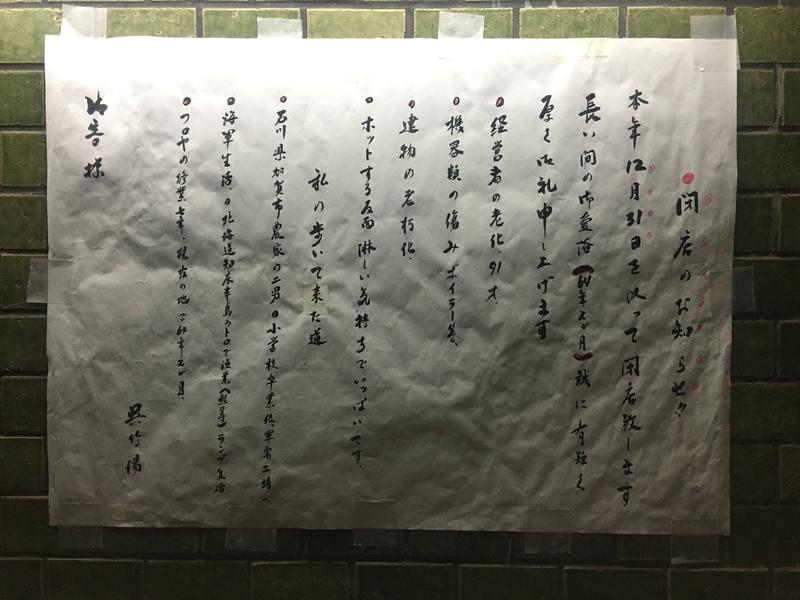 閉店のお知らせ!!
本年12月31日を以って閉店致します
長い間の御愛浴(64年2か月)誠に有難く
厚く御礼申し上げます
経営者の老化、91才、
機器類の傷みボイラー等、
建物の老朽化、
ホットする反面淋しい気持ちでいっぱいです、
私の歩いて来た道
石川県加賀市農家の二男 小学校卒業後軍需工場へ
海軍生活、北海道知床半島ウトロで漁業(鮭鱒)ランプ生活
フロヤの修業七年、現在の地で64年2か月、
呉竹湯
皆様